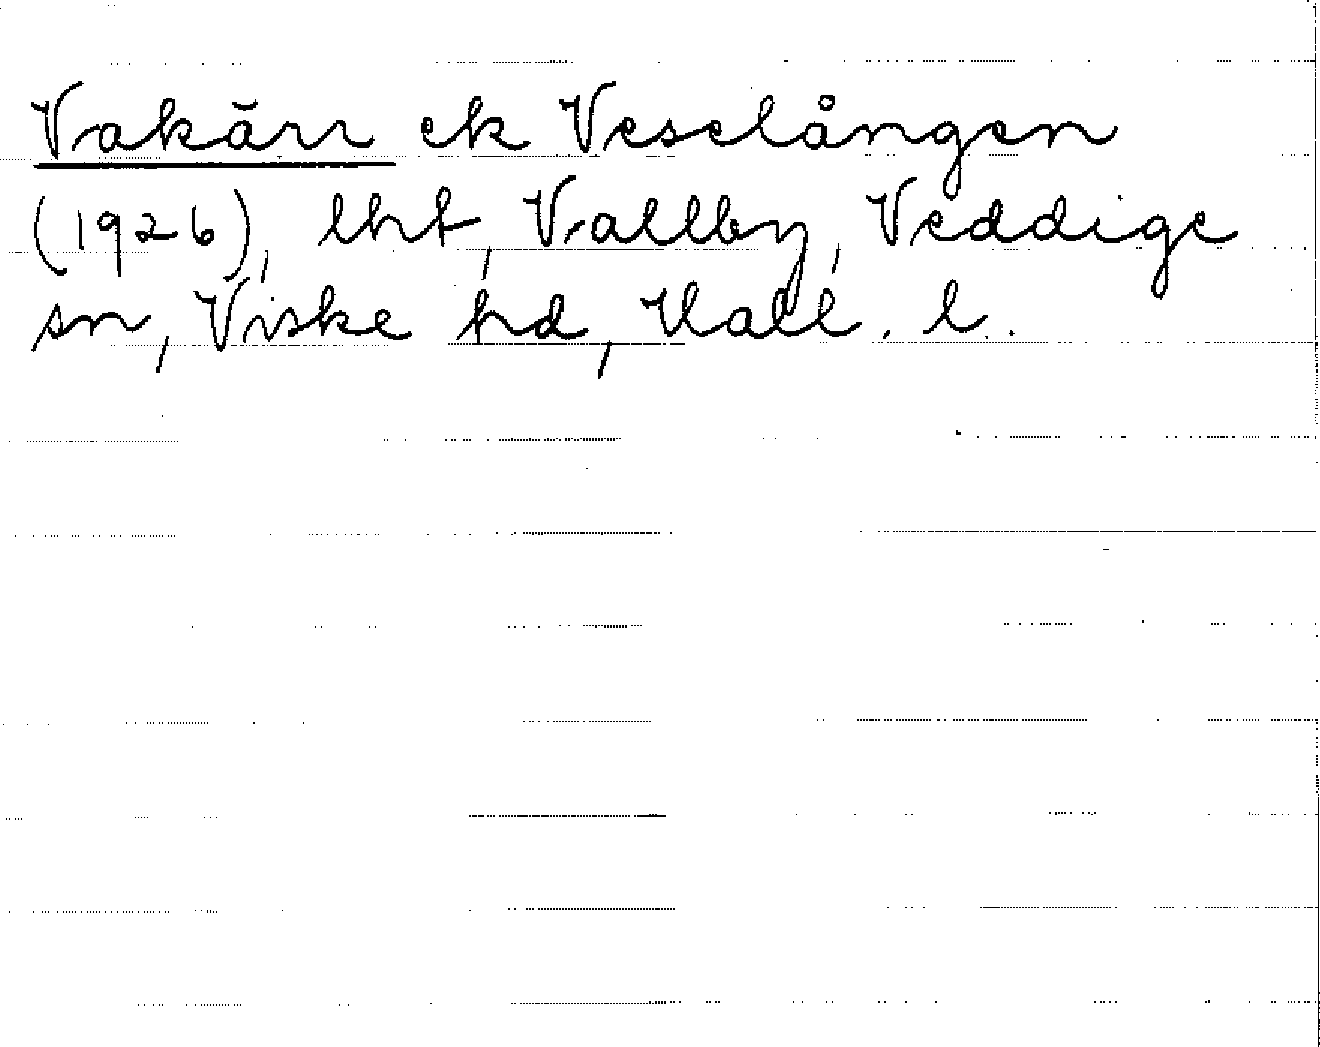 Vakärr ek Veselången
(1926), lht, Vallby, Veddige
sn, Viske hd, Hall. l.